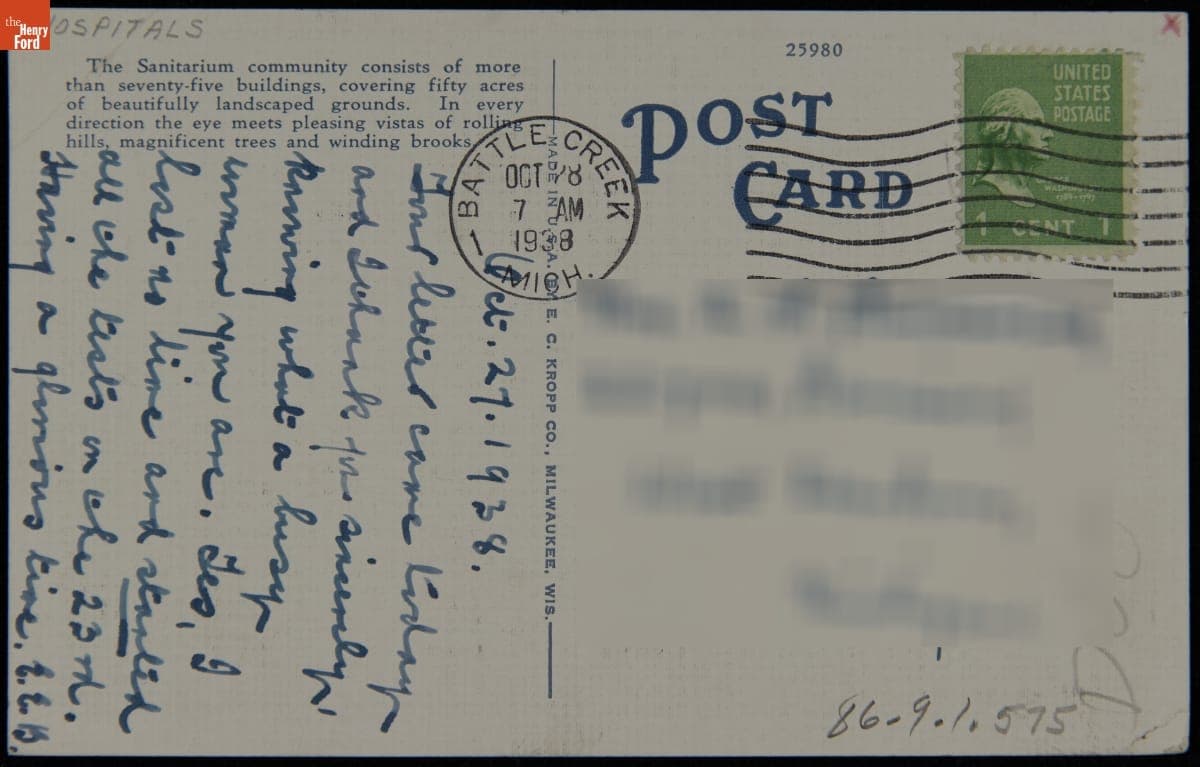 the
Henry
Ford
HOSPITALS
The Sanitarium community consists of more
than seventy-five buildings, covering fifty acres
of beautifully landscaped grounds. In every
direction the eye meets pleasing vistas of rolling
hills, magnificent trees and winding brooks.
25980
POST
CARD
UNITED
STATES
POSTAGE
1 CENT 1
BATTLE CREEK
OCT 28
7 AM
1938
MICH.
MADE IN U.S.A. BY E. C. KROPP CO., MILWAUKEE, WIS.
Oct. 27. 1938.
Your letter came today
and I thank you sincerely,
knowing what a busy
woman you are. Yes, I
lost no time and started
all the tests on the 23rd.
Having a glorious time. E.E.B.
86.9.1.575